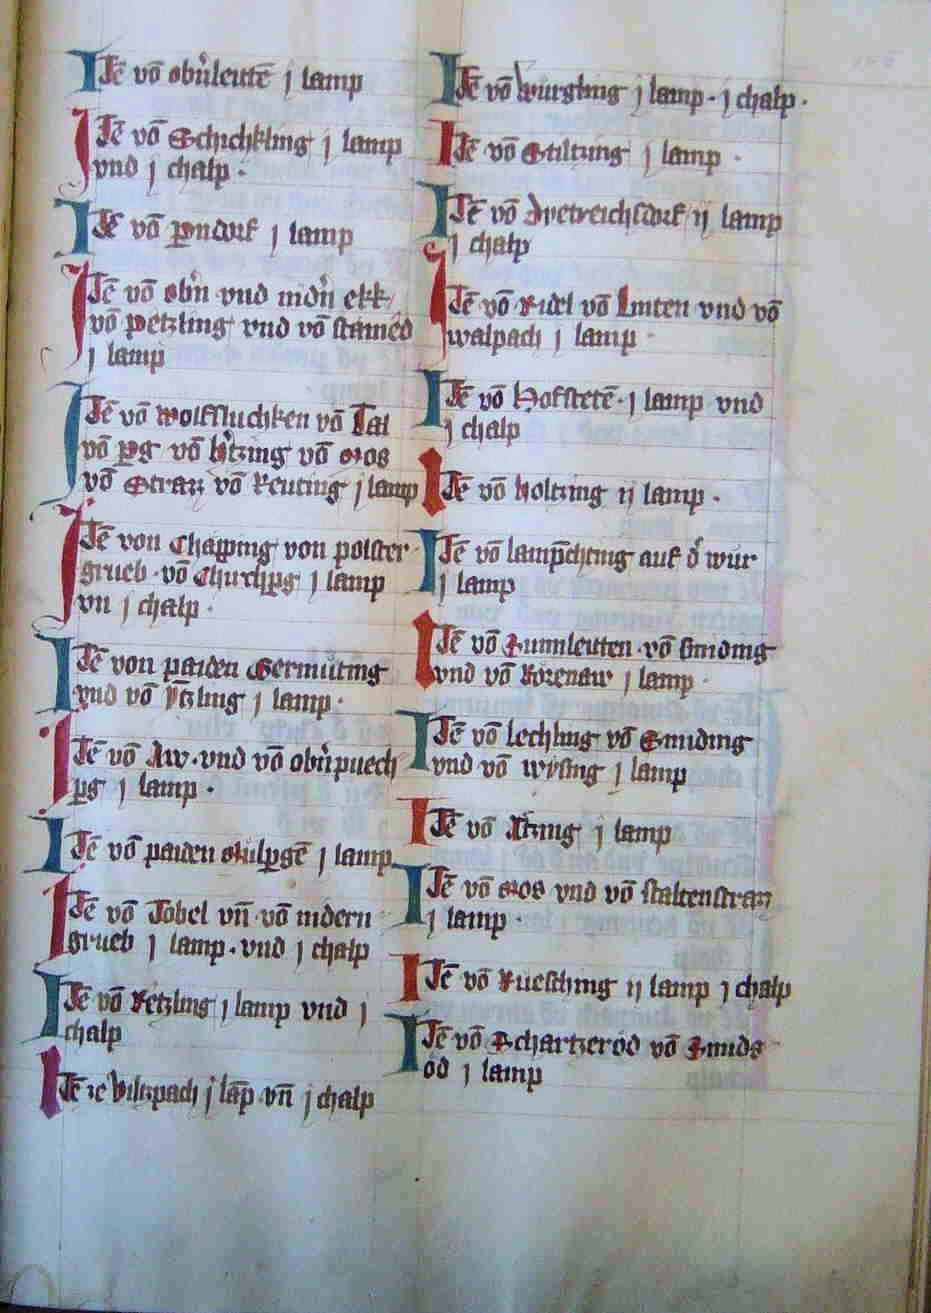 ITē vō obn̄leutē j lamp
ITē vō Schichkling j lamp
vnd j chalp ·
ITē vō pndorf j lamp
ITē vō obn̄ vnd nidn̄ ekk
vō petzling vnd vō
j lamp
ITē vō wolffluchken vō Tal
vō pg vō vō mos
vō Straz vō Reuting j lamp
ITē von Chapping von polster
grueb · vō Churchpg j lamp
vn j chalp ·
ITē von paiden Germuting
vnd vō j lamp ·
ITē vō Aw · vnd vō obn̄puech
pg j lamp ·
ITē vō paiden j lamp
ITē vō Tobel vn̄ vō nidern
grueb j lamp · vnd j chalp
ITē vō Retzling j lamp vnd j
chalp
ITē ze vilspach j lāp vn̄ j chalp
ITē vō Wurgling j lamp · j chalp ·
ITē vō Stiltzing j lamp ·
ITē vō dietreichsdorf ij lamp
j chalp
ITē vō Ridel vō Linten vnd vō
walpach j lamp ·
ITē vō Hofstetē · j lamp vnd
j chalp
ITē vō holtzing ij lamp ·
ITē vō auf d' wur
ij lamp
ITē vō Prunnleutten · vō Smiding
vnd vō Rorenaw j lamp ·
ITē vō lechling vō Smiding
vnd vō wysing j lamp
ITē vō Atzing j lamp
ITē vō mos vnd vō staltenstrazz
j lamp
ITē vō Ruesching ij lamp j chalp
ITē vō Schartzeröd vō
öd j lamp